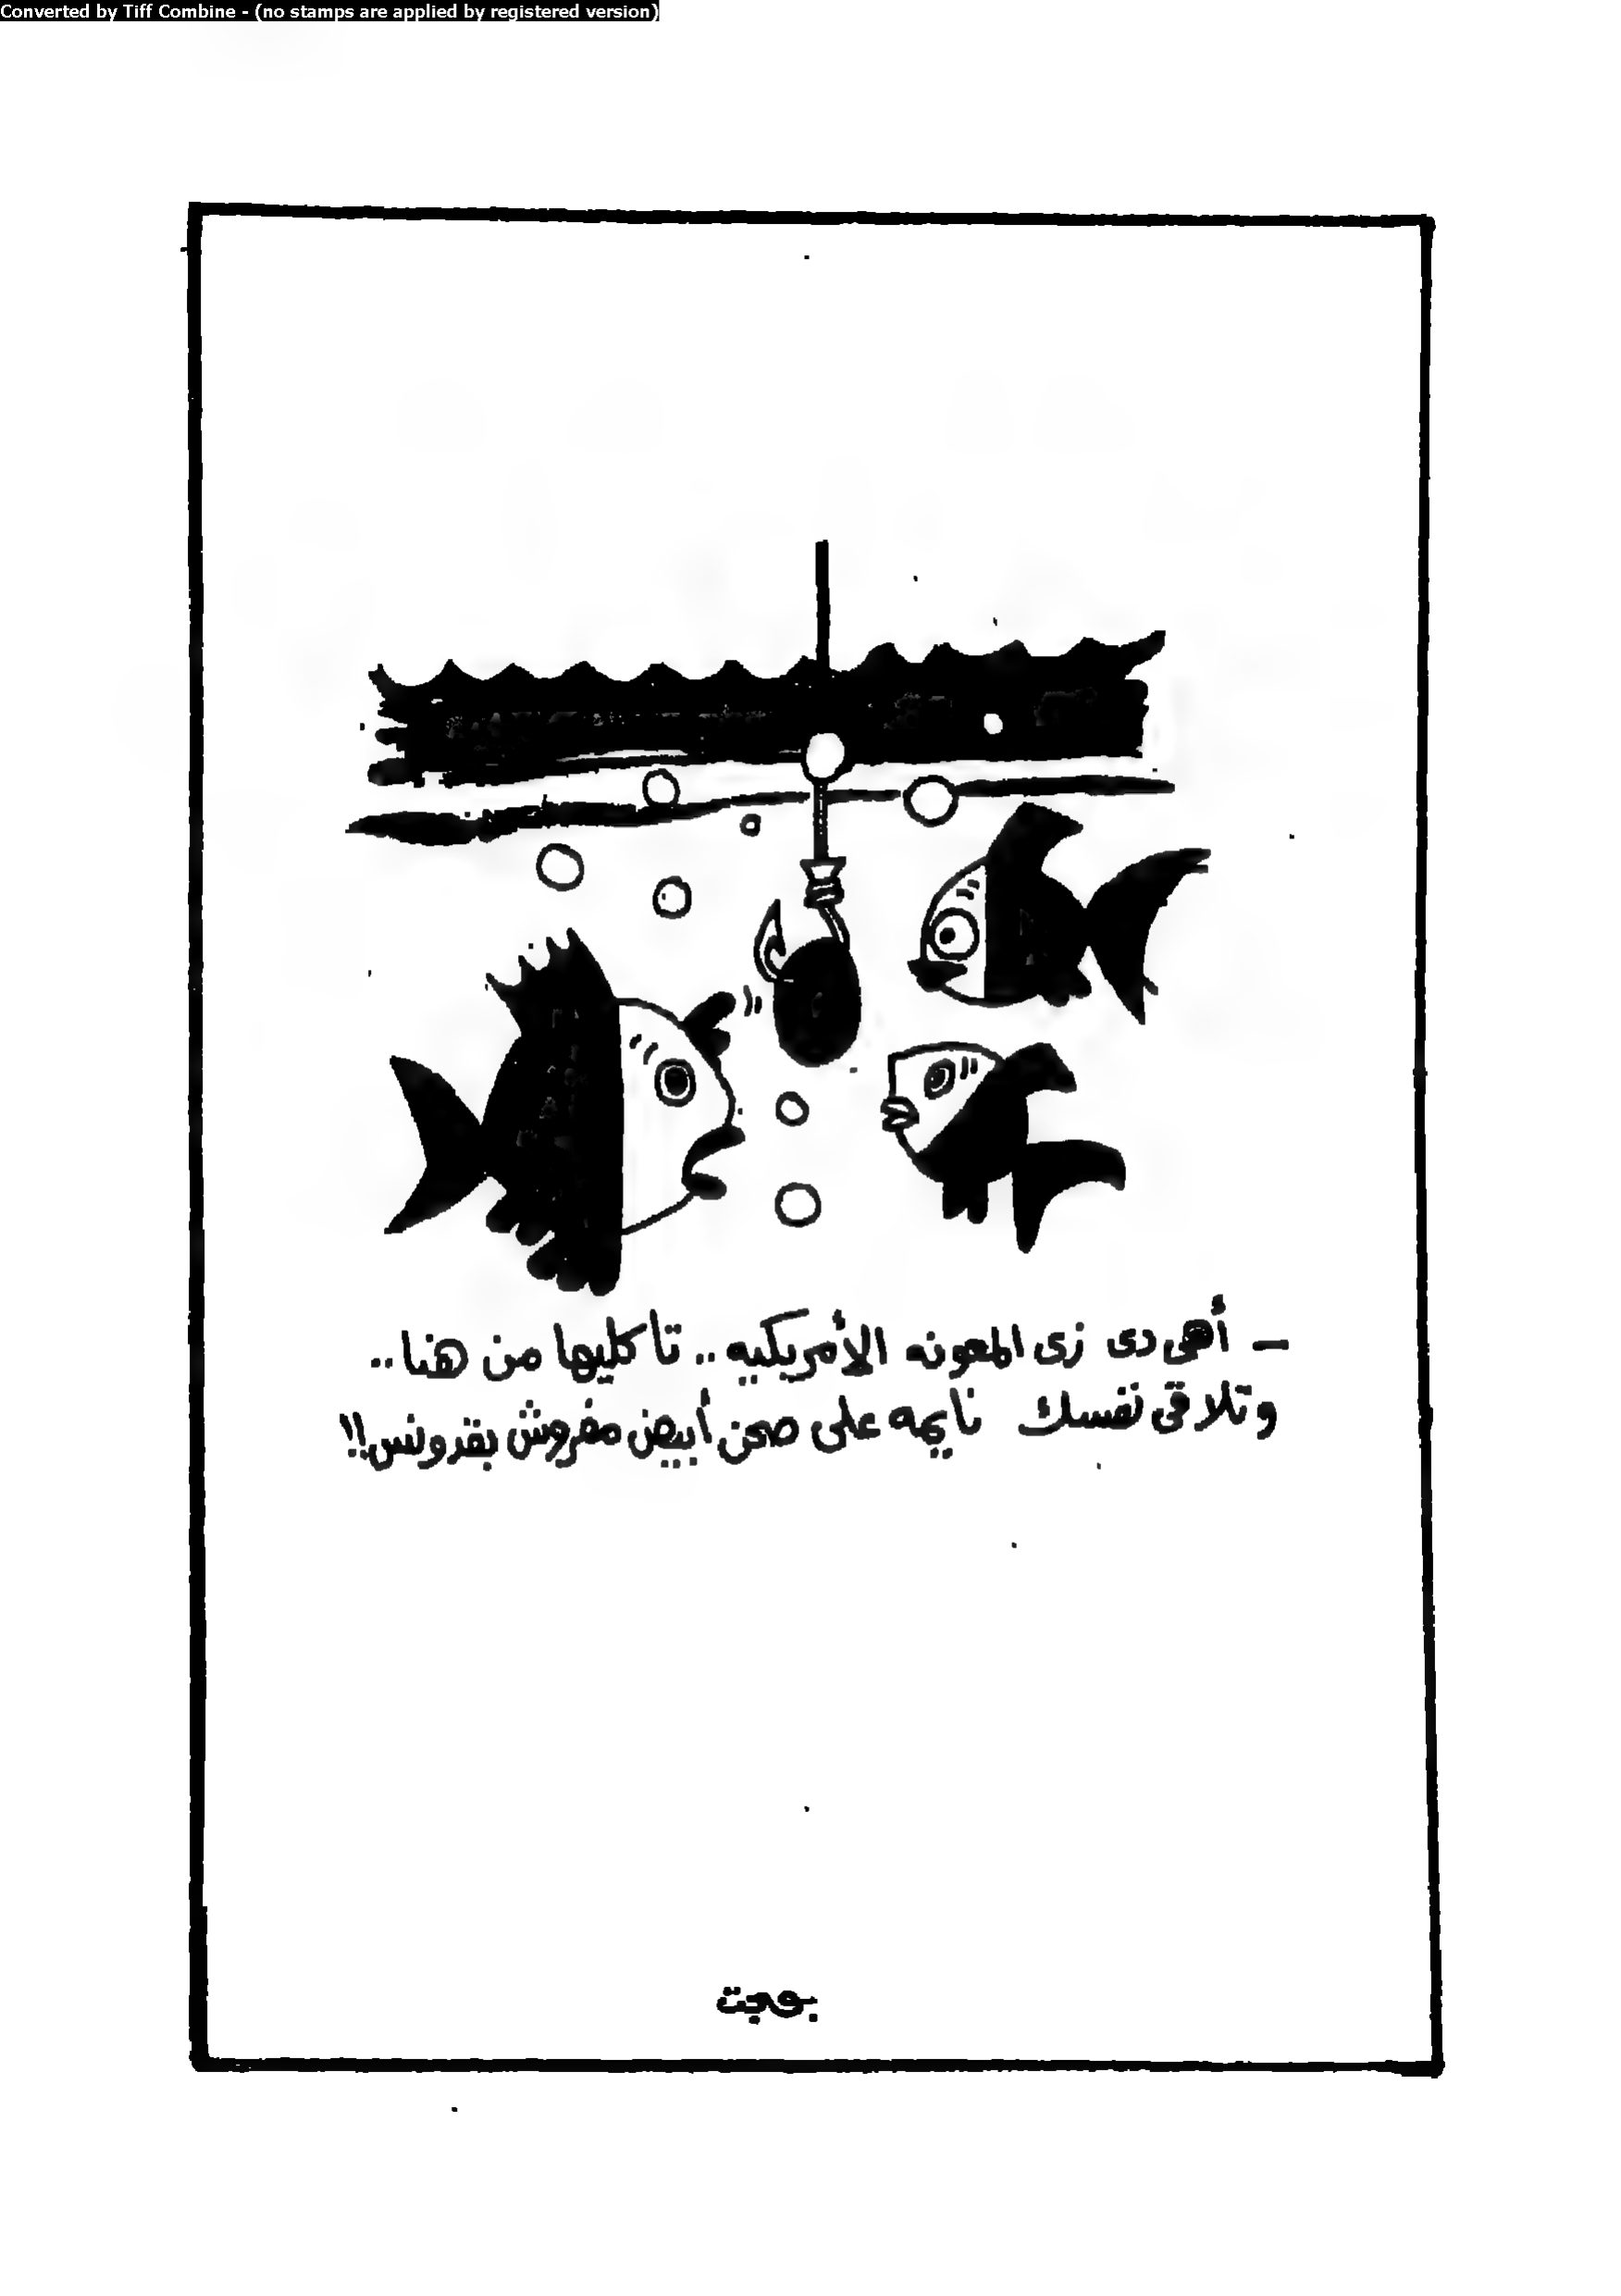 Converted by Tiff Combine - (no stamps are applied by registered version)
— أهى دى زى المعونه الأمريكيه .. تاكليها من هنا ..
وتلاقى نفسك نايمه على صحن أبيض مفروش بقدونس !!
بهجت